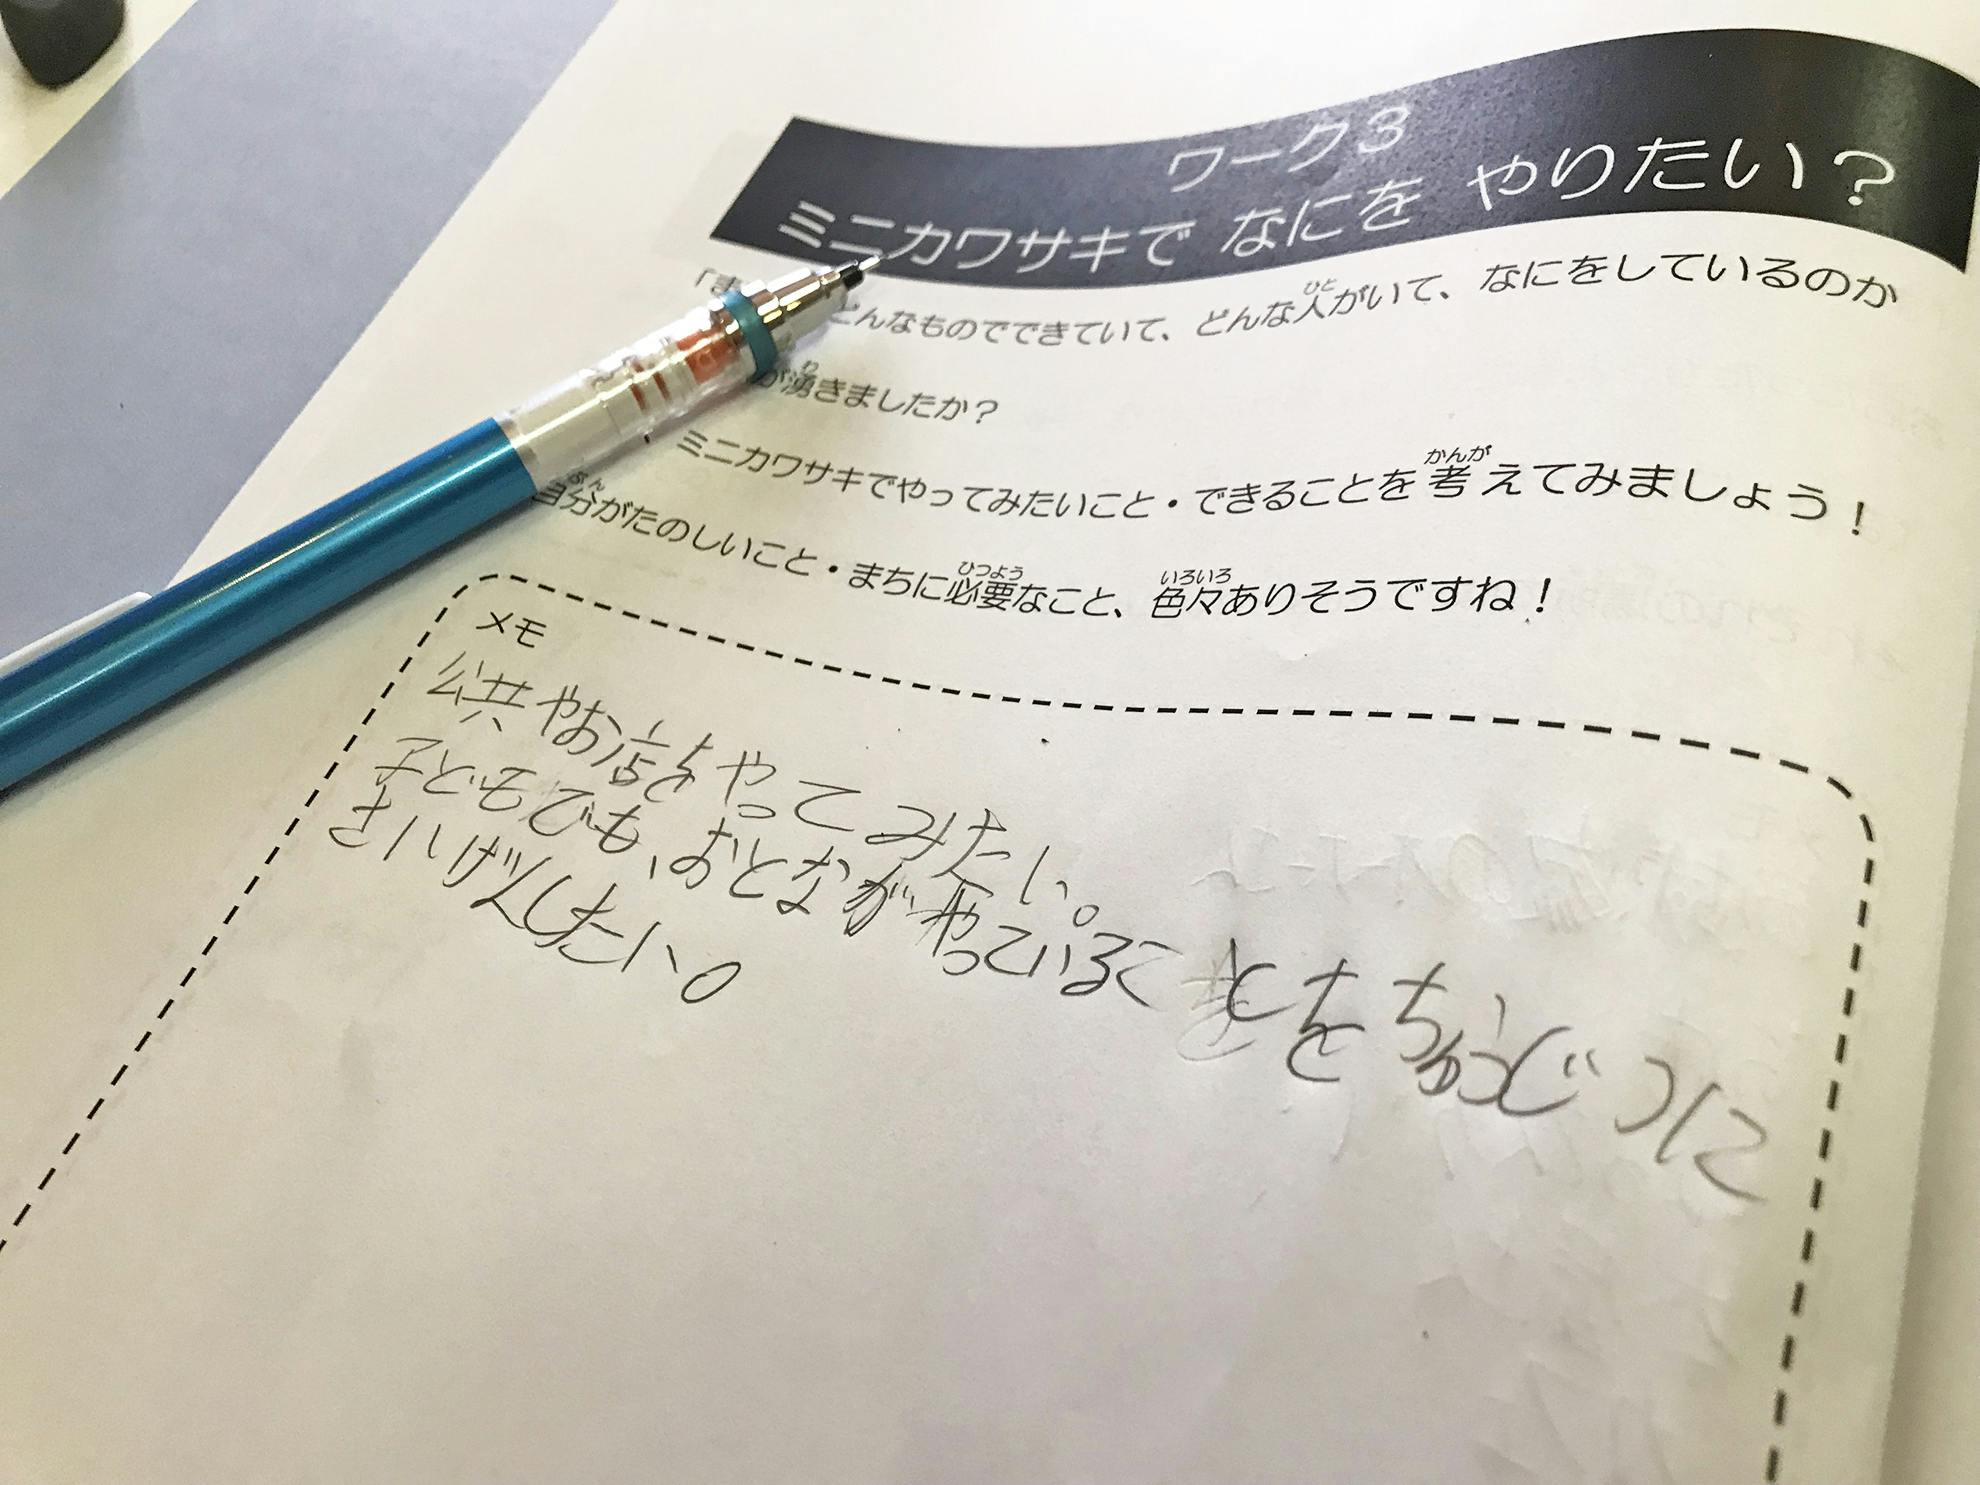 ワーク3
ミニカワサキで なにを やりたい？
「ま どんなものでできていて、どんな人がいて、なにをしているのか
が湧きましたか？
ミニカワサキでやってみたいこと・できることを考えてみましょう！
自分がたのしいこと・まちに必要なこと、色々ありそうですね！
メモ
公共やお店をやってみたい。
子どもでも、おとながやっていることをちゅうじつに
さいげんしたい。